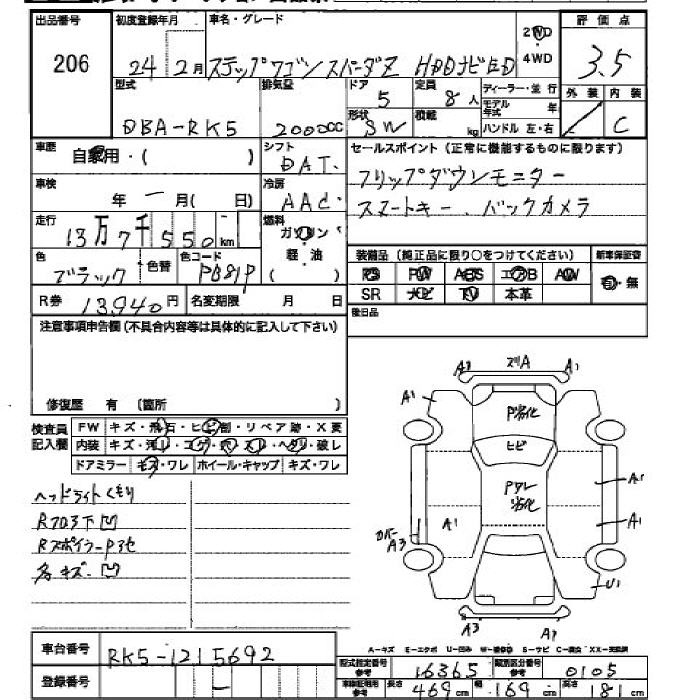 出品番号 初度登録年月 車名・グレード 2WD 評価点
206 24年2月 ステップワゴンスパーダZ HDDナビED 4WD 3.5
型式 排気量 ドア 定員 ディーラー・並行 外装 内装
DBA-RK5 2000cc 5 8人 モデル年式 年 C
形状 SW 積載 kg ハンドル 左・右
車歴 自家用・( ) シフト DAT. セールスポイント(正常に機能するものに限ります)
車検 年 ー月( 日) 冷房 AAC. フリップダウンモニター
スマートキー、バックカメラ
走行 13万7千550km 燃料 ガソリン 軽油 ( )
装備品(純正品に限り○をつけてください) 新車保証書
色 ブラック 色替 色コード PB81P
PS PW ABS エアB AW 有・無
SR ナビ TV 本革
R券 13,940円 名変期限 月 日 後日品
注意事項申告欄(不具合内容等は具体的に記入して下さい)
修復歴 有 (箇所 )
検査員記入欄 FW キズ・飛石・ヒビ割・リペア跡・X要
内装 キズ・汚レ・コゲ・穴・スレ・ヘタリ・破レ
ドアミラー キズ・ワレ ホイール・キャップ キズ・ワレ
ヘッドライトくもり
Rフロア下凹
Rスポイラーワレ
各キズ・凹
A2 ズリA A1
A1 P劣化
ヒビ
Pタレ劣化
A1 A1 A1
カバーA3
U1
A3 A2
A-キズ E-エクボ U-凹み W-補修跡 S-サビ C-腐食 XX-交換済
車台番号 RK5-1215692
登録番号 ー
型式指定番号参考 16365 類別区分番号参考 0105
車体証明用参考 長さ 469cm 幅 169cm 高さ 181cm